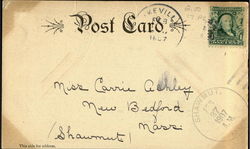 Post Card.
KEVILL
Miss Carrie Ashley
New Bedford
(Shawmut) Mass
SHAWMUT,
27
This side for address.